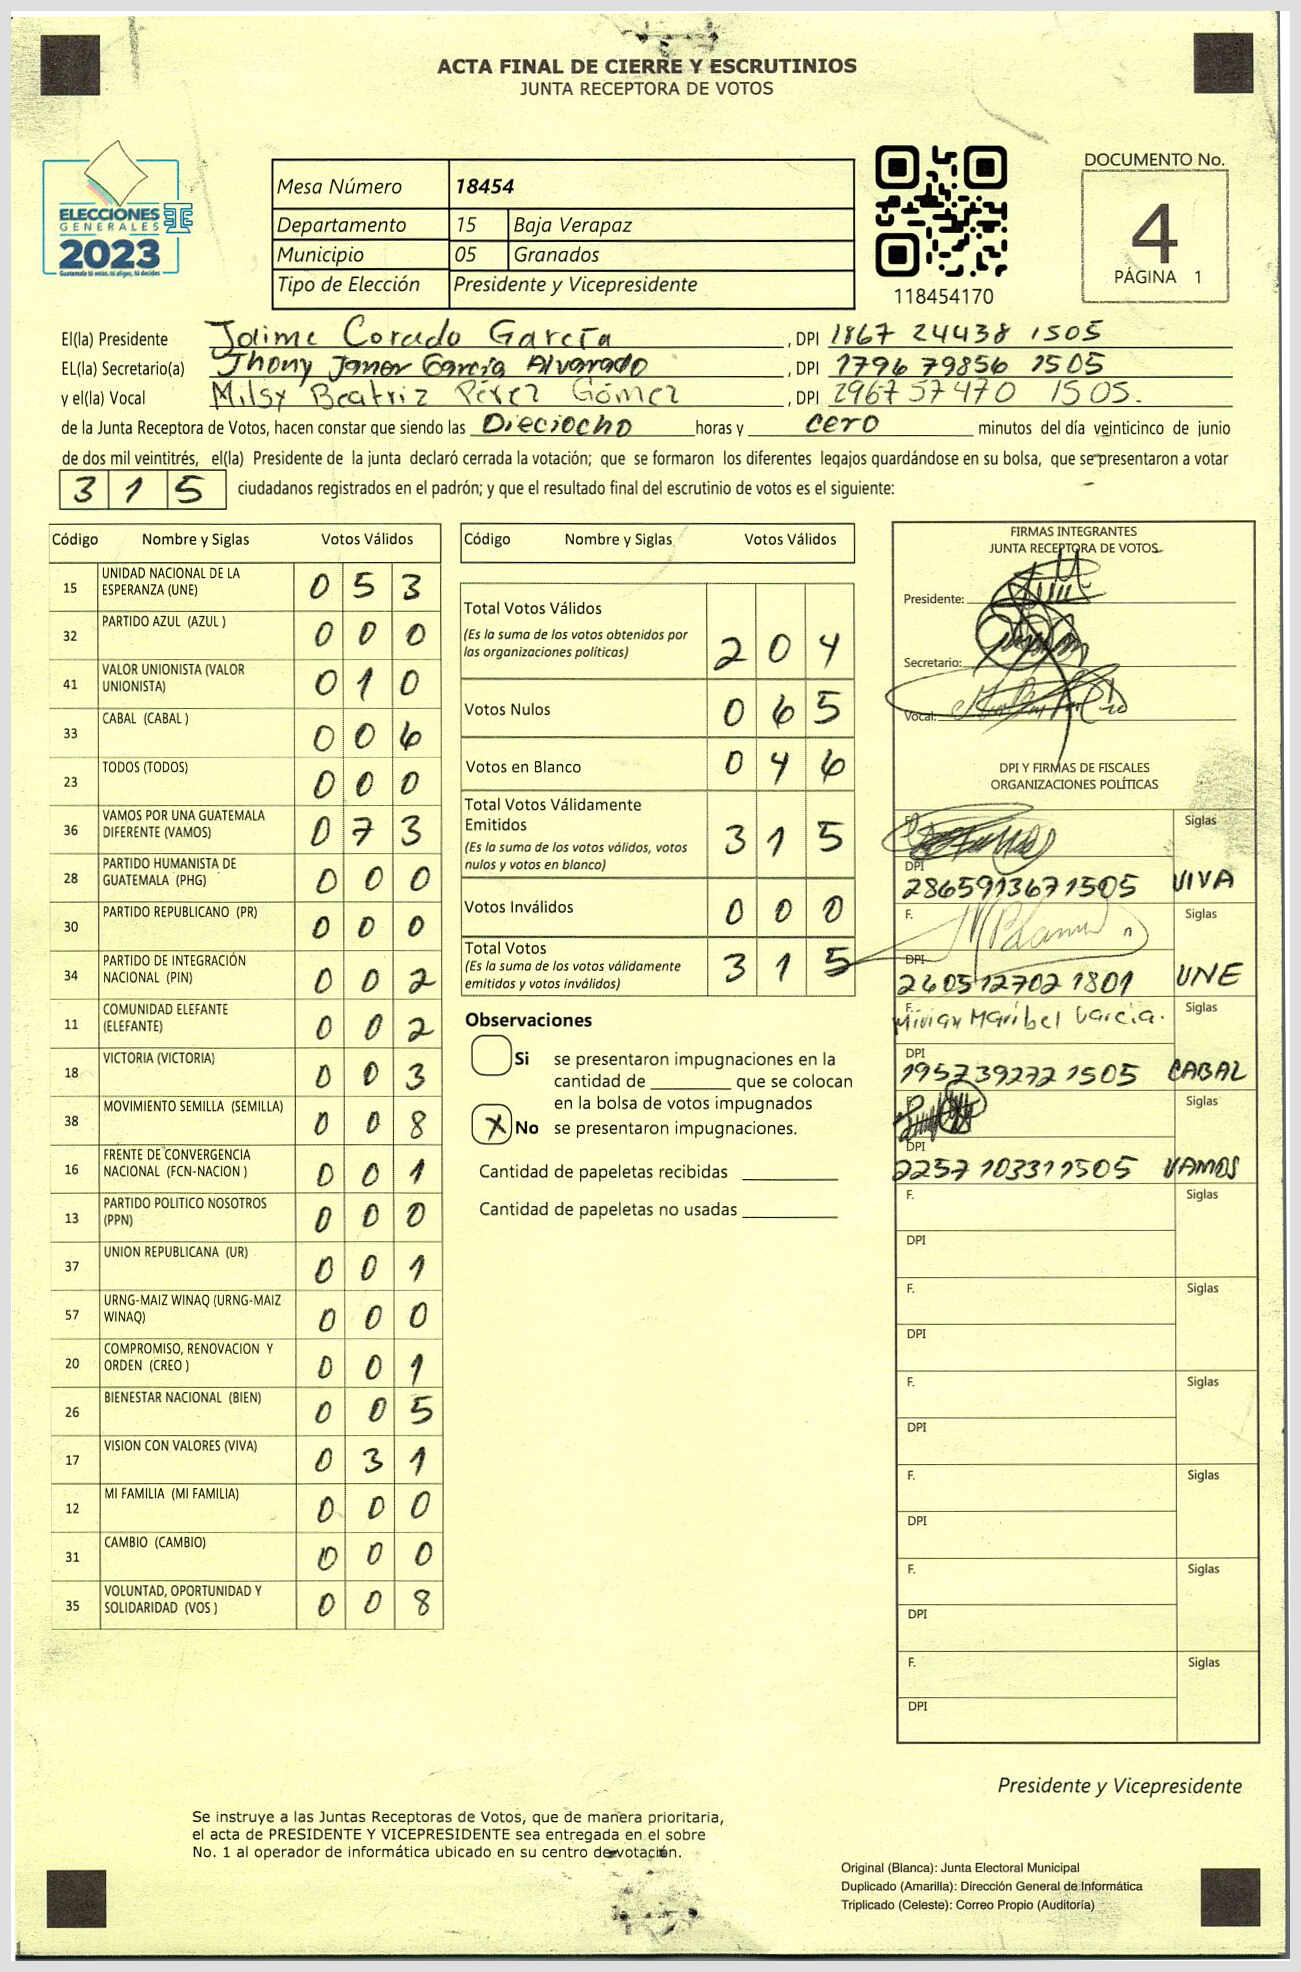 ACTA FINAL DE CIERRE Y ESCRUTINIOS
JUNTA RECEPTORA DE VOTOS
ELECCIONES
GENERALES
2023
Guatemala tú votas, tú eliges, tú decides
Mesa Número 18454
Departamento 15 Baja Verapaz
Municipio 05 Granados
Tipo de Elección Presidente y Vicepresidente
118454170
DOCUMENTO No.
4
PÁGINA 1
El(la) Presidente Jaime Corado García , DPI 1867 24438 1505
EL(la) Secretario(a) Jhony Janer García Alvarado , DPI 1796 79856 1505
y el(la) Vocal Milsy Beatriz Pérez Gómez , DPI 2967 57470 1505.
de la Junta Receptora de Votos, hacen constar que siendo las Dieciocho horas y cero minutos del día veinticinco de junio
de dos mil veintitrés, el(la) Presidente de la junta declaró cerrada la votación; que se formaron los diferentes legajos guardándose en su bolsa, que se presentaron a votar
315 ciudadanos registrados en el padrón; y que el resultado final del escrutinio de votos es el siguiente:
Código Nombre y Siglas Votos Válidos
15 UNIDAD NACIONAL DE LA ESPERANZA (UNE) 0 5 3
32 PARTIDO AZUL (AZUL ) 0 0 0
41 VALOR UNIONISTA (VALOR UNIONISTA) 0 1 0
33 CABAL (CABAL ) 0 0 6
23 TODOS (TODOS) 0 0 0
36 VAMOS POR UNA GUATEMALA DIFERENTE (VAMOS) 0 7 3
28 PARTIDO HUMANISTA DE GUATEMALA (PHG) 0 0 0
30 PARTIDO REPUBLICANO (PR) 0 0 0
34 PARTIDO DE INTEGRACIÓN NACIONAL (PIN) 0 0 2
11 COMUNIDAD ELEFANTE (ELEFANTE) 0 0 2
18 VICTORIA (VICTORIA) 0 0 3
38 MOVIMIENTO SEMILLA (SEMILLA) 0 0 8
16 FRENTE DE CONVERGENCIA NACIONAL (FCN-NACION ) 0 0 1
13 PARTIDO POLITICO NOSOTROS (PPN) 0 0 0
37 UNION REPUBLICANA (UR) 0 0 1
57 URNG-MAIZ WINAQ (URNG-MAIZ WINAQ) 0 0 0
20 COMPROMISO, RENOVACION Y ORDEN (CREO ) 0 0 1
26 BIENESTAR NACIONAL (BIEN) 0 0 5
17 VISION CON VALORES (VIVA) 0 3 1
12 MI FAMILIA (MI FAMILIA) 0 0 0
31 CAMBIO (CAMBIO) 0 0 0
35 VOLUNTAD, OPORTUNIDAD Y SOLIDARIDAD (VOS ) 0 0 8
Código Nombre y Siglas Votos Válidos
Total Votos Válidos
(Es la suma de los votos obtenidos por
las organizaciones políticas) 2 0 4
Votos Nulos 0 6 5
Votos en Blanco 0 4 6
Total Votos Válidamente
Emitidos
(Es la suma de los votos válidos, votos
nulos y votos en blanco) 3 1 5
Votos Inválidos 0 0 0
Total Votos
(Es la suma de los votos válidamente
emitidos y votos inválidos) 3 1 5
Observaciones
Si se presentaron impugnaciones en la
cantidad de ________ que se colocan
en la bolsa de votos impugnados
X No se presentaron impugnaciones.
Cantidad de papeletas recibidas
Cantidad de papeletas no usadas
FIRMAS INTEGRANTES
JUNTA RECEPTORA DE VOTOS
Presidente:
Secretario:
Vocal:
DPI Y FIRMAS DE FISCALES
ORGANIZACIONES POLÍTICAS
F. Siglas
DPI
2865913671505 VIVA
F. Siglas
DPI
2605127021801 UNE
F. Mivian Maribel Garcia. Siglas
DPI
1957392721505 CABAL
F. Siglas
DPI
2257103311505 VAMOS
F. Siglas
DPI
F. Siglas
DPI
F. Siglas
DPI
F. Siglas
DPI
F. Siglas
DPI
F. Siglas
DPI
Presidente y Vicepresidente
Se instruye a las Juntas Receptoras de Votos, que de manera prioritaria,
el acta de PRESIDENTE Y VICEPRESIDENTE sea entregada en el sobre
No. 1 al operador de informática ubicado en su centro de votación.
Original (Blanca): Junta Electoral Municipal
Duplicado (Amarilla): Dirección General de Informática
Triplicado (Celeste): Correo Propio (Auditoría)